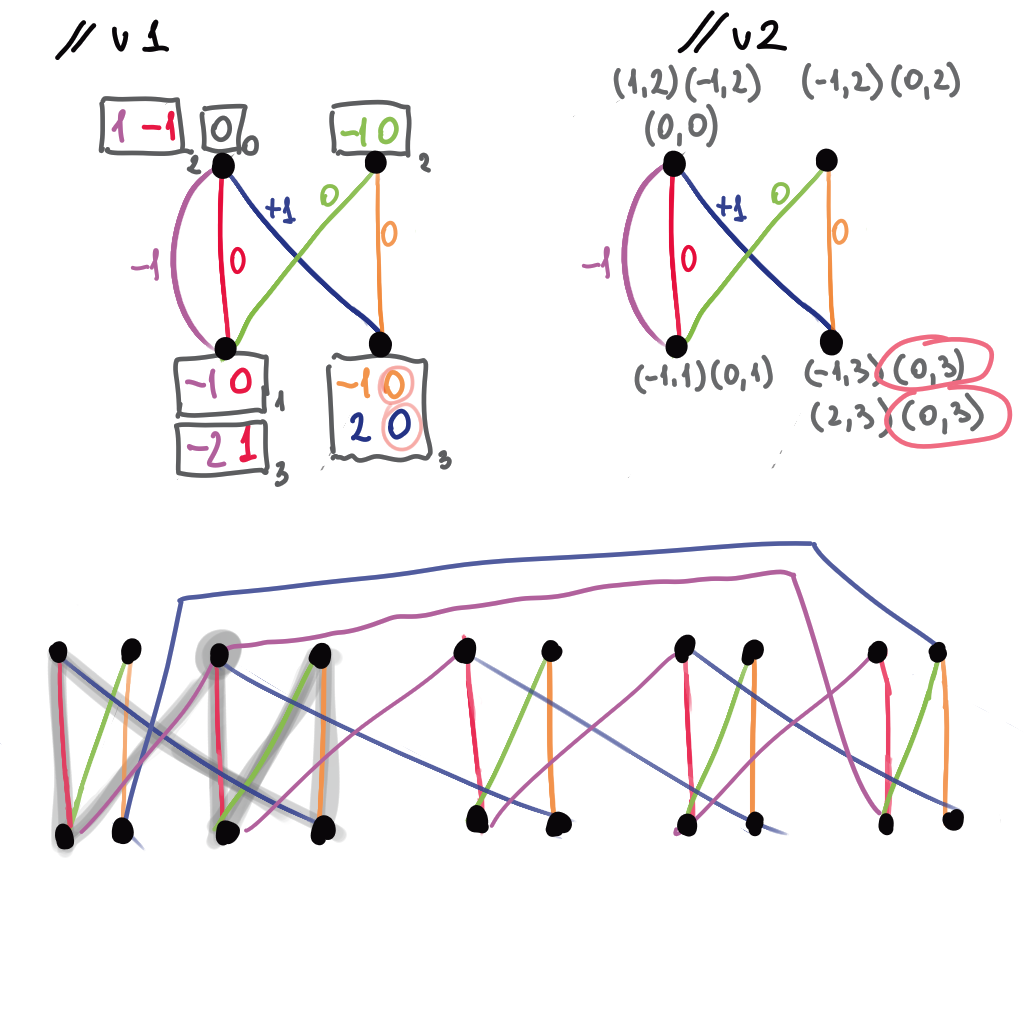 // v1
1 -1 2
0 0
-1 0 2
-1
0
+1
0
0
-1 0 1
-2 1 3
-1 0
2 0 3
// v2
(1,2) (-1,2)
(0,0)
(-1,2) (0,2)
-1
0
+1
0
0
(-1,1) (0,1)
(-1,3) (0,3)
(2,3) (0,3)